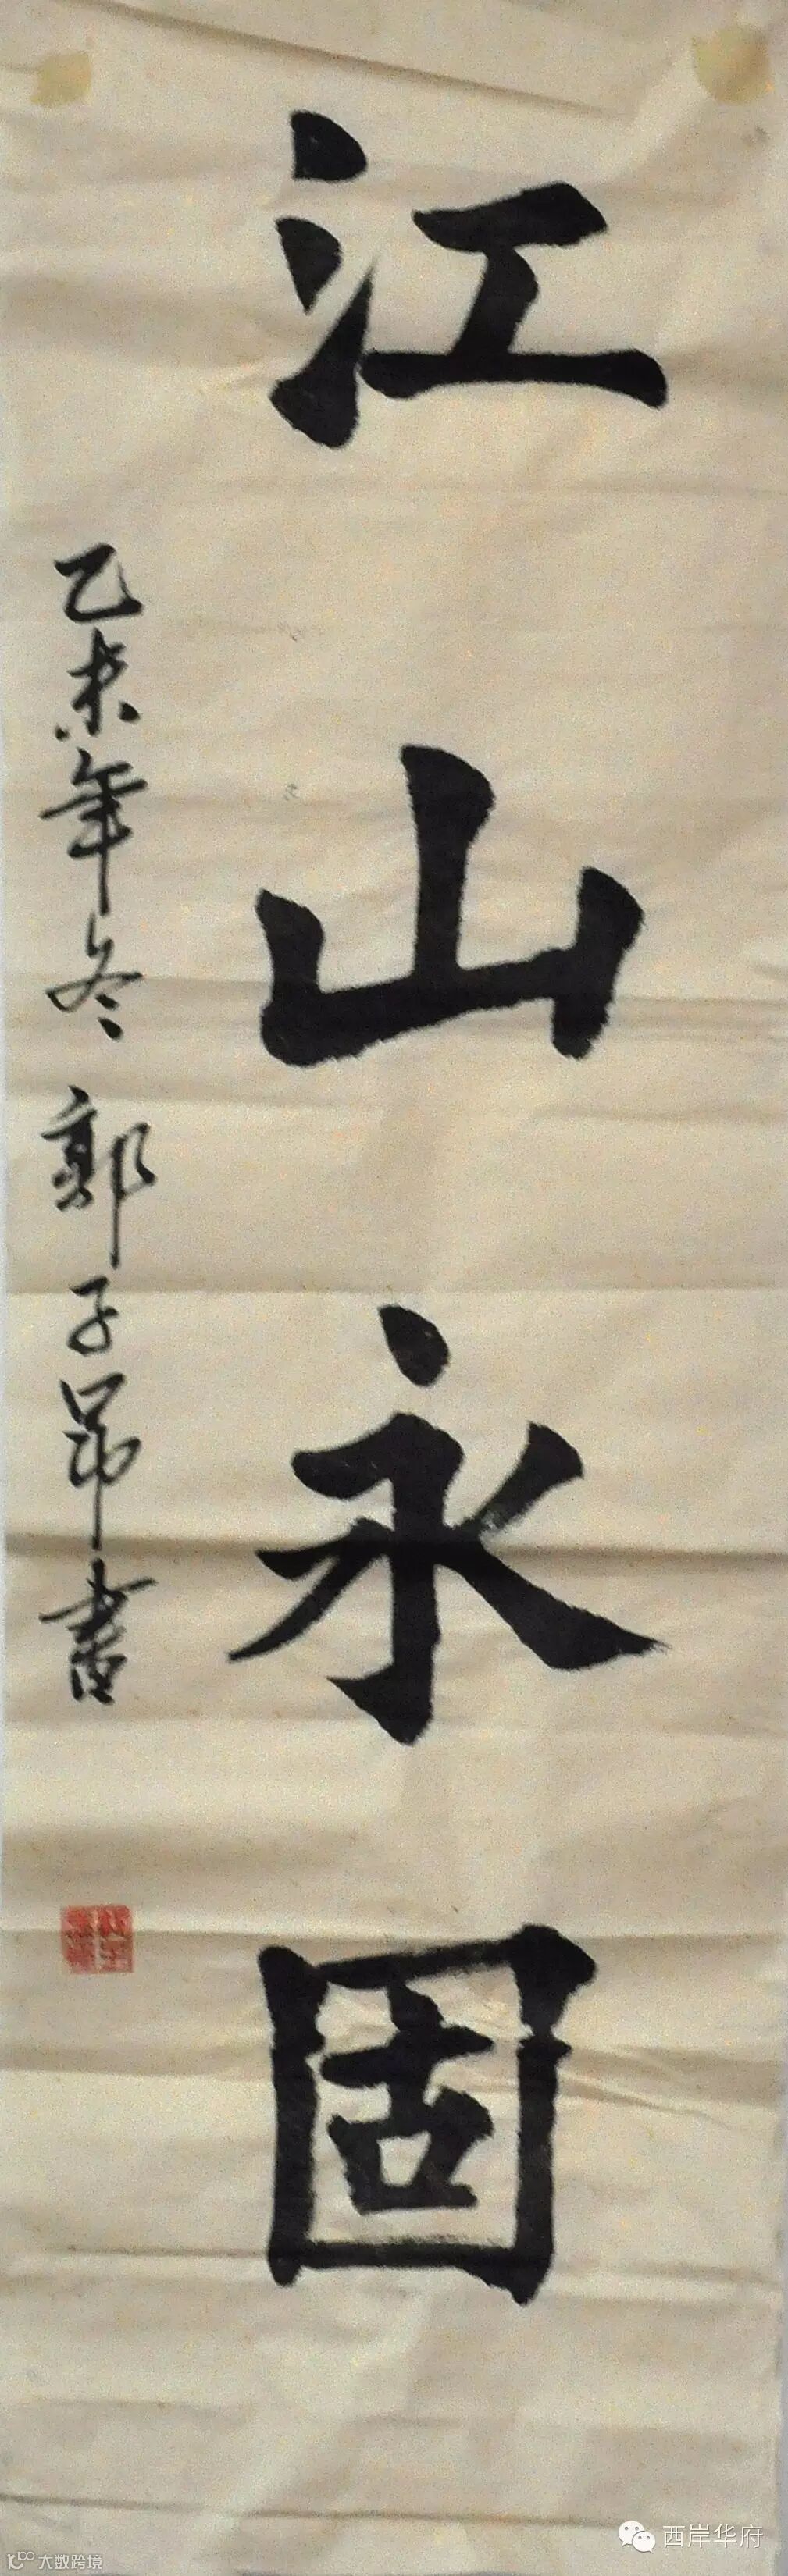 江山永固
乙未年冬 郭子昂書
西岸华府
大数跨境